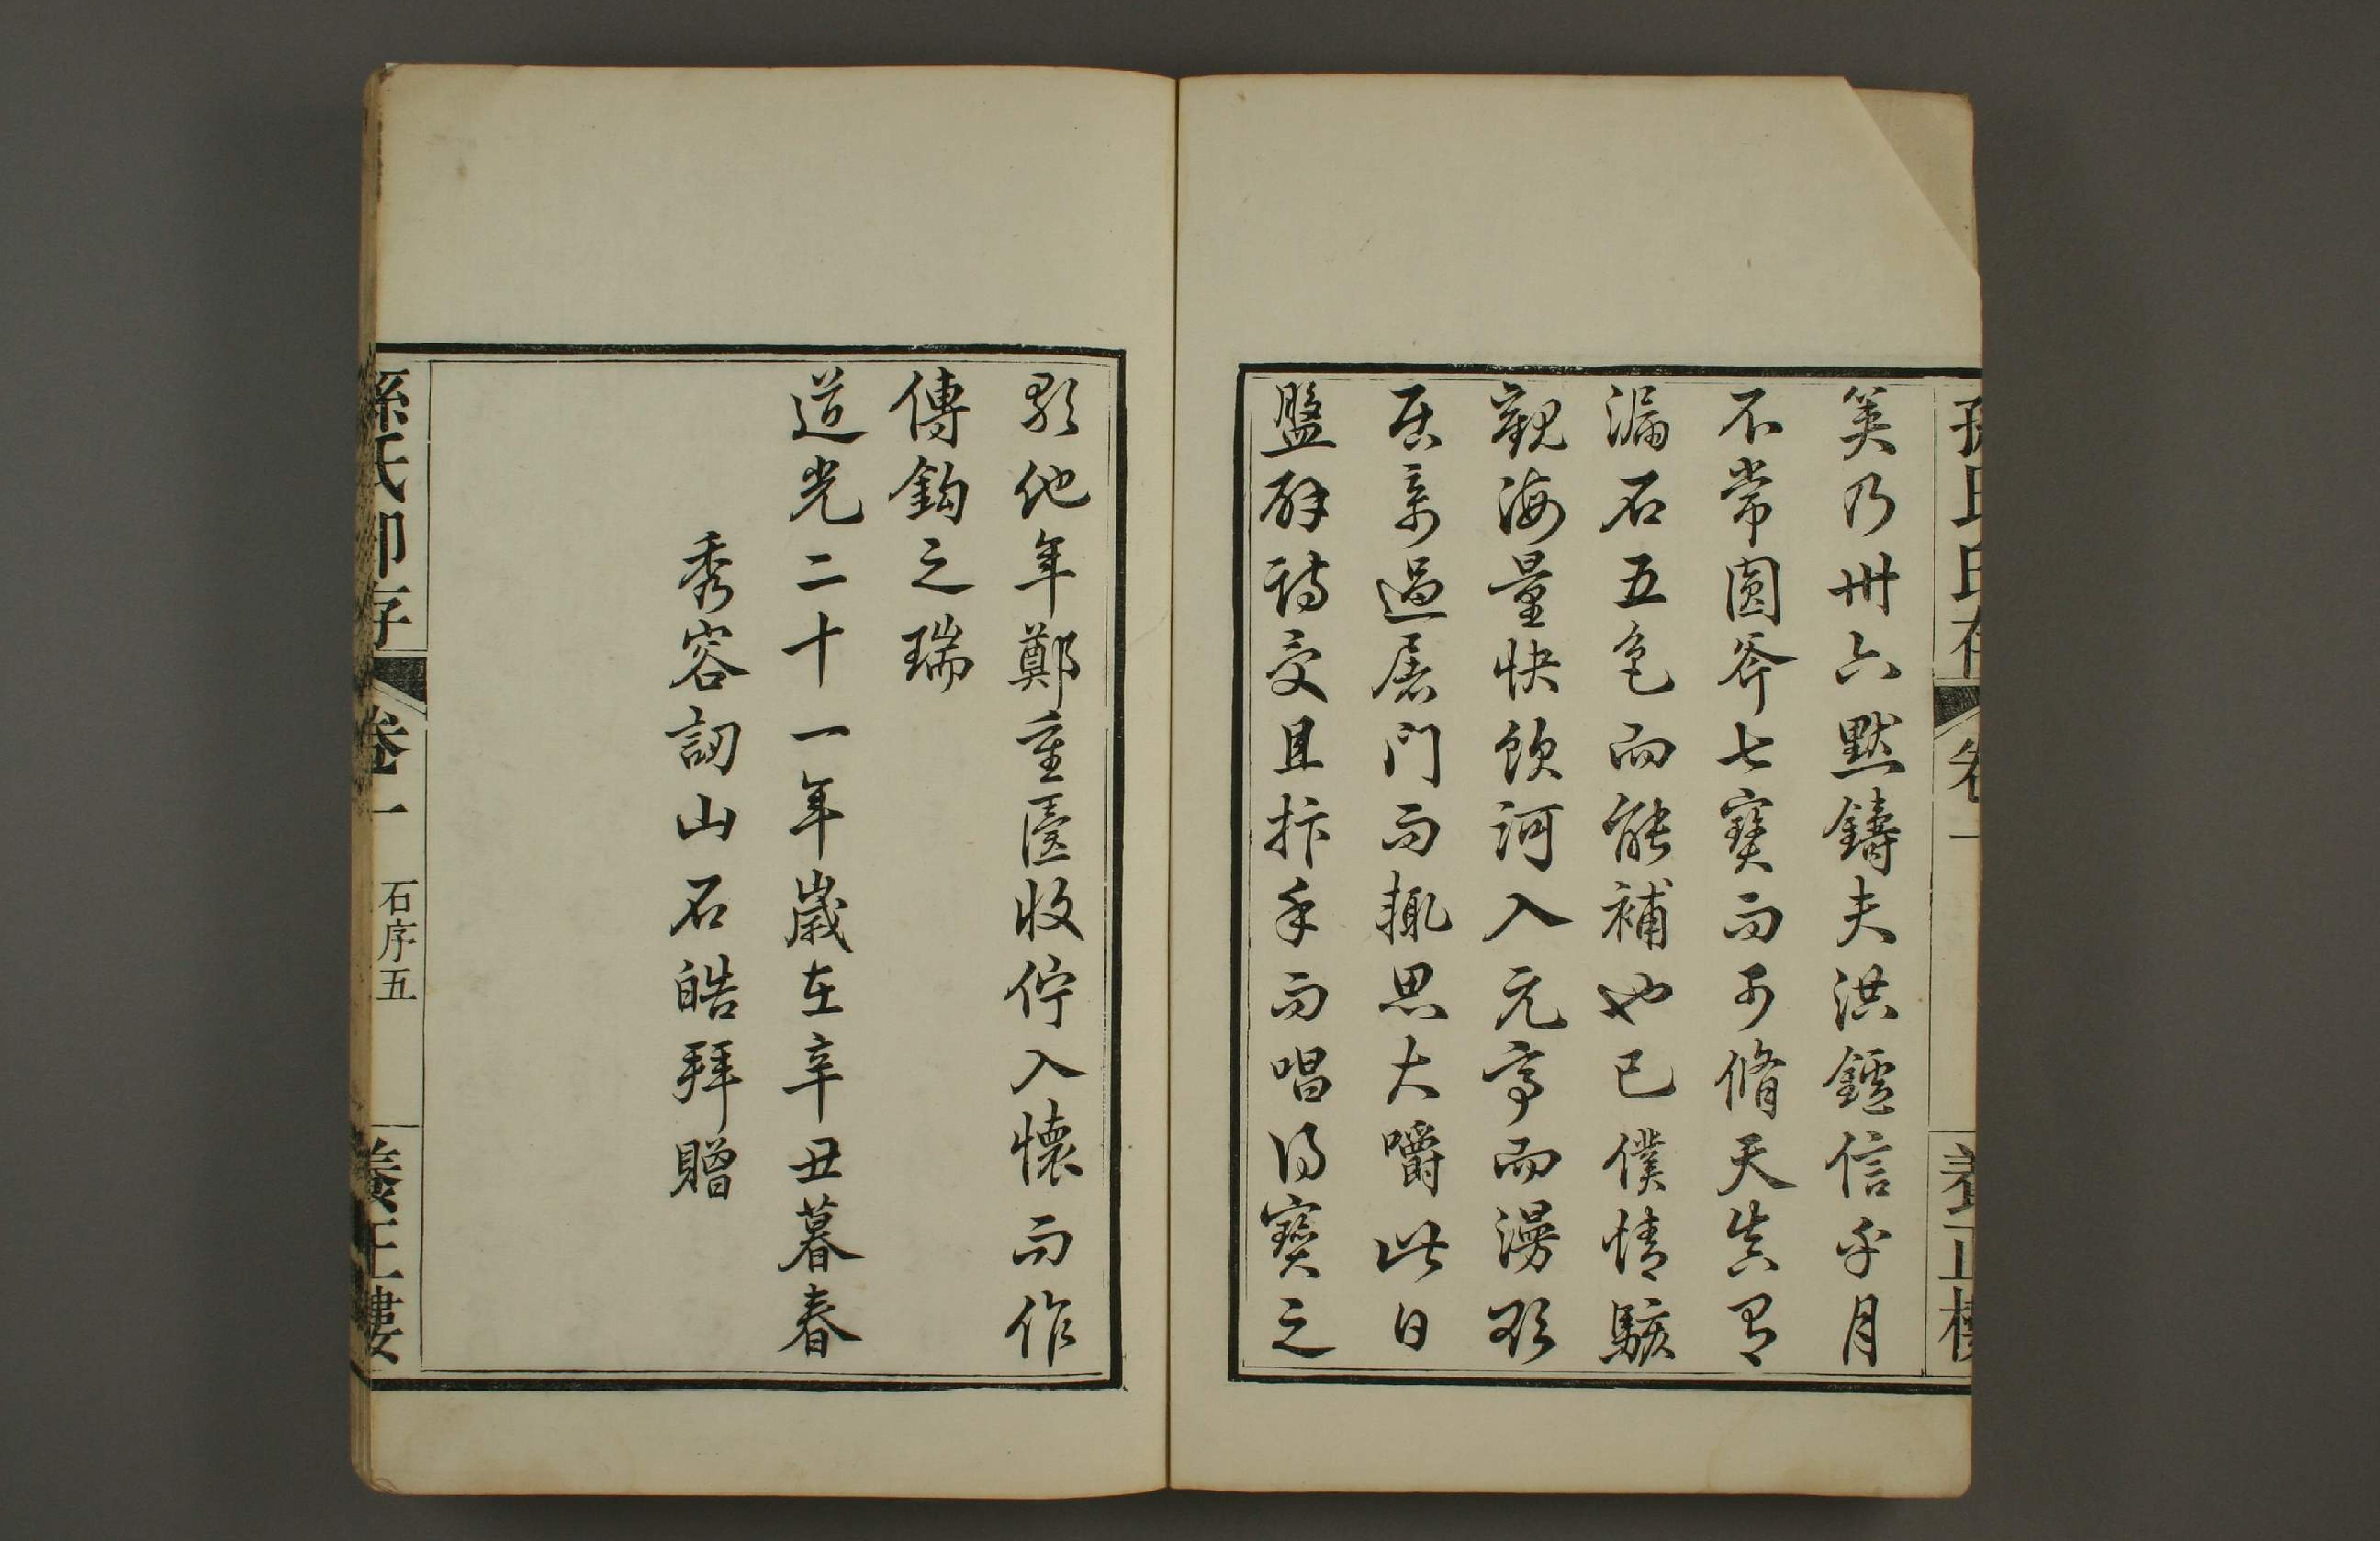 孫氏印存 卷一 養正樓
笑乃卅六默鑄夫洪鑪信乎月
不常圓斧七寶而可脩天真有
漏石五色而能補也已僕情駭
觀海量快飲河入元亭而漫歌
居京過屠門而輒思大嚼此日
盤辟詩交且抃手而唱得寶之
歌他年鄭重匳收佇入懷而作
傳鈎之瑞
道光二十一年歲在辛丑暮春
秀容訒山石皓拜贈
孫氏印存 卷一 石序五 養正樓